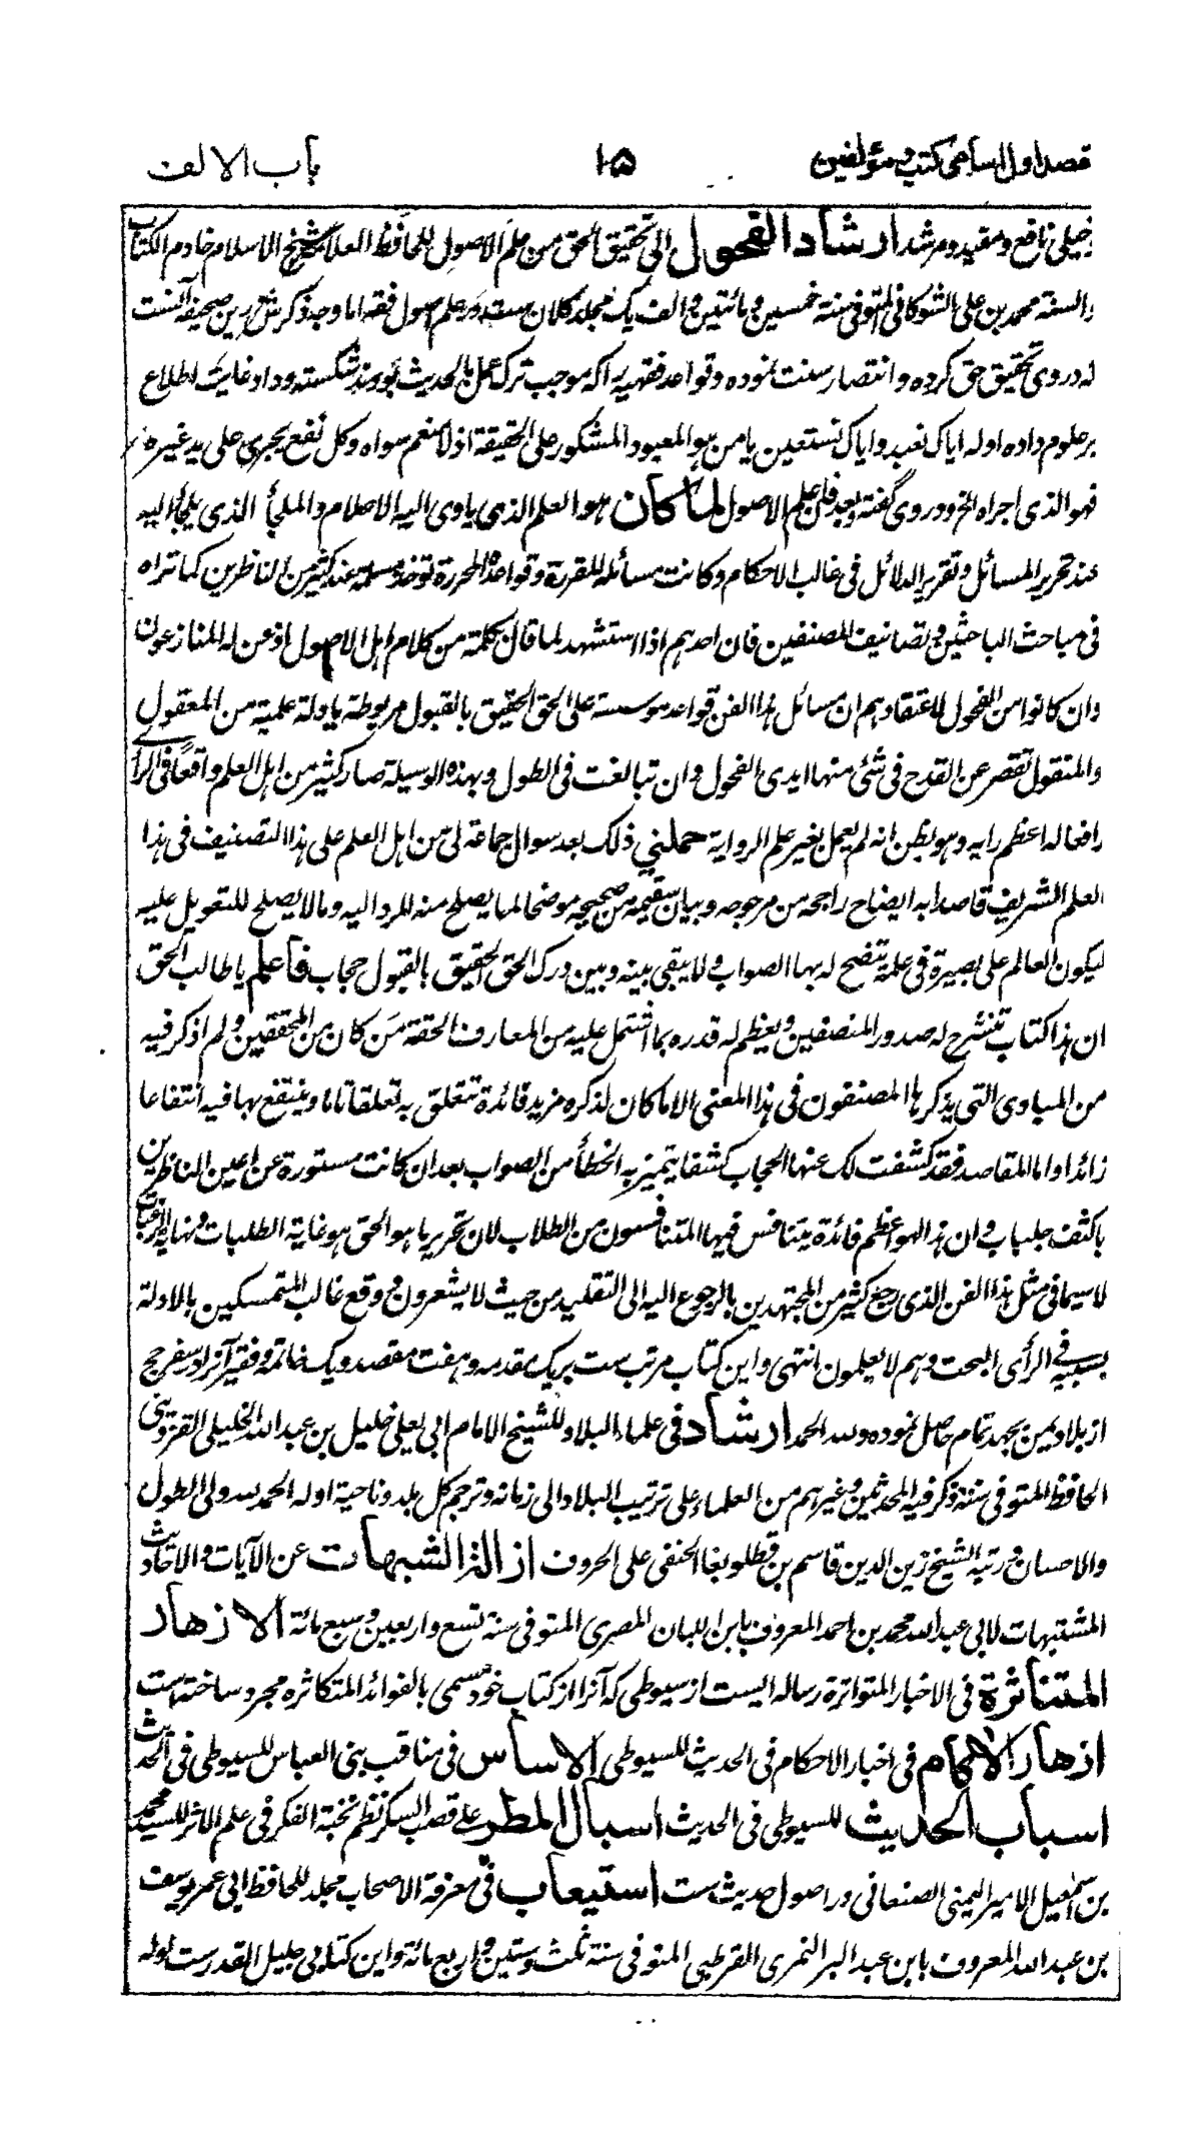 مقصد اول اسامی کتب و مؤلفین ۱۵ باب الالف
خیلی نافع و مفید و مرشد ارشاد الفحول الی تحقیق الحق من علم الاصول للحافظ العلامۃ شیخ الاسلام خادم الکتاب
والسنۃ محمد بن علی الشوکانی المتوفی سنۃ خمسین و مائتین و الف یک مجلد کلان ست در علم اصول فقہ اما وجہ ذکرش درین صحیفہ آنست
کہ در وی تحقیق حق کردہ و انتصار سنت نمودہ و قواعد فقہیہ را کہ موجب ترک عمل بالحدیث بودند شکستہ و داد غایت اطلاع
بر علوم دادہ اولہ ایاک نعبد وایاک نستعین یا من ہو المعبود المشکور علی الحقیقۃ اذ لا منعم سواہ وکل نفع یجری علی ید غیرہ
فہو الذی اجراہ الخ و در وی گفتہ وبعد فان علم الاصول لما کان ہو العلم الذی یاوی الیہ الاعلام والملجأ الذی یلجأ الیہ
عند تحریر المسائل وتقریر الدلائل فی غالب الاحکام وکانت مسائلہ المقررۃ وقواعدہ المحررۃ تؤخذ مسلمۃ عند کثیر من الناظرین کما تراہ
فی مباحث الباحثین وتصانیف المصنفین فان احدہم اذا استشہد لما قال بکلمۃ من کلام اہل الاصول اذعن لہ المنازعون
وان کانوا من الفحول لاعتقادہم ان مسائل ہذا الفن قواعد مؤسسۃ علی الحق الحقیق بالقبول مربوطۃ بادلۃ علمیۃ من المعقول
والمنقول تقصر عن القدح فی شئ منہا ایدی الفحول وان تبالغت فی الطول وبہذہ الوسیلۃ صار کثیر من اہل العلم واقعًا فی الرأی
رافعا لہ اعظم رایہ وہو یظن انہ لم یعمل بغیر علم الروایۃ حملنی ذلک بعد سوال جماعۃ لی من اہل العلم علی ہذا التصنیف فی ہذا
العلم الشریف قاصدا بہ ایضاح راجحہ من مرجوحہ وبیان سقیمہ من صحیحہ موضحا لما یصلح منہ للرد الیہ وما لا یصلح للتعویل علیہ
لیکون العالم علی بصیرۃ فی علمہ یتضح لہ بہا الصواب ولا یبقی بینہ وبین درک الحق الحقیق بالقبول حجاب فاعلم یا طالب الحق
ان ہذا کتاب تنشرح لہ صدور المنصفین ویعظم لہ قدرہ بما اشتمل علیہ من المعارف الحقۃ مَن کان من المحققین ولم اذکر فیہ
من المبادی التی یذکرہا المصنفون فی ہذا المعنی الا ما کان لذکرہ مزید فائدۃ تتعلق بہ تعلقا تاما وینتفع بہا فیہ انتفاعا
زائدا واما المقاصد فقد کشفت لک عنہا الحجاب کشفا یتمیز بہ الخطأ من الصواب بعد ان کانت مستورۃ عن اعین الناظرین
باکثف جلباب وان ہذا لہو اعظم فائدۃ یتنافس فیہا المتنافسون من الطلاب لان تحریر ما ہو الحق ہو غایۃ الطلبات ونہایۃ الرغبات
لاسیما فی مثل ہذا الفن الذی رجع کثیر من المجتہدین بالرجوع الیہ الی التقلید من حیث لا یشعرون ووقع غالب المتمسکین بالادلۃ
بسببہ فی الرأی البحت وہم لا یعلمون انتہی و این کتاب مرتب ست بر یک مقدمہ و ہفت مقصد و یک خاتمہ و فقیر آنرا در سفر حج
از بلاد یمن بجہد تمام حاصل نمودہ وللہ الحمد ارشاد فی علماء البلاد للشیخ الامام ابی یعلی خلیل بن عبد اللہ الخلیلی القزوینی
الحافظ المتوفی سنۃ ذکر فیہ المحدثین وغیرہم من العلماء علی ترتیب البلاد الی زمانہ وترجم کل بلد وناحیۃ اولہ الحمد للہ ولی الطول
والاحسان ورتبہ الشیخ زین الدین قاسم بن قطلوبغا الحنفی علی الحروف ازالۃ الشبہات عن الآیات والاحادیث
المشتبہات لابی عبد اللہ محمد بن احمد المعروف بابن اللبان المصری المتوفی سنۃ تسع واربعین وسبع مائۃ الازہار
المتناثرۃ فی الاخبار المتواترۃ رسالہ ایست از سیوطی کہ آنرا از کتاب خود مسمی بالفوائد المتکاثرہ مجرد ساختہ است
ازہار الاکمام فی اخبار الاحکام فی الحدیث للسیوطی الاساس فی مناقب بنی العباس للسیوطی فی الحدیث
اسباب الحدیث للسیوطی فی الحدیث اسبال المطر علی قصب السکر نظم نخبۃ الفکر فی علم الاثر للسید محمد
بن اسمٰعیل الامیر الیمنی الصنعانی در اصول حدیث ست استیعاب فی معرفۃ الاصحاب مجلد للحافظ ابی عمر یوسف
بن عبد اللہ المعروف بابن عبد البر النمری القرطبی المتوفی سنۃ ثلث وستین واربع مائۃ و این کتابی جلیل القدرست اولہ